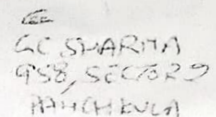 GC SHARMA
958, SECTOR 9
PANCHKULA